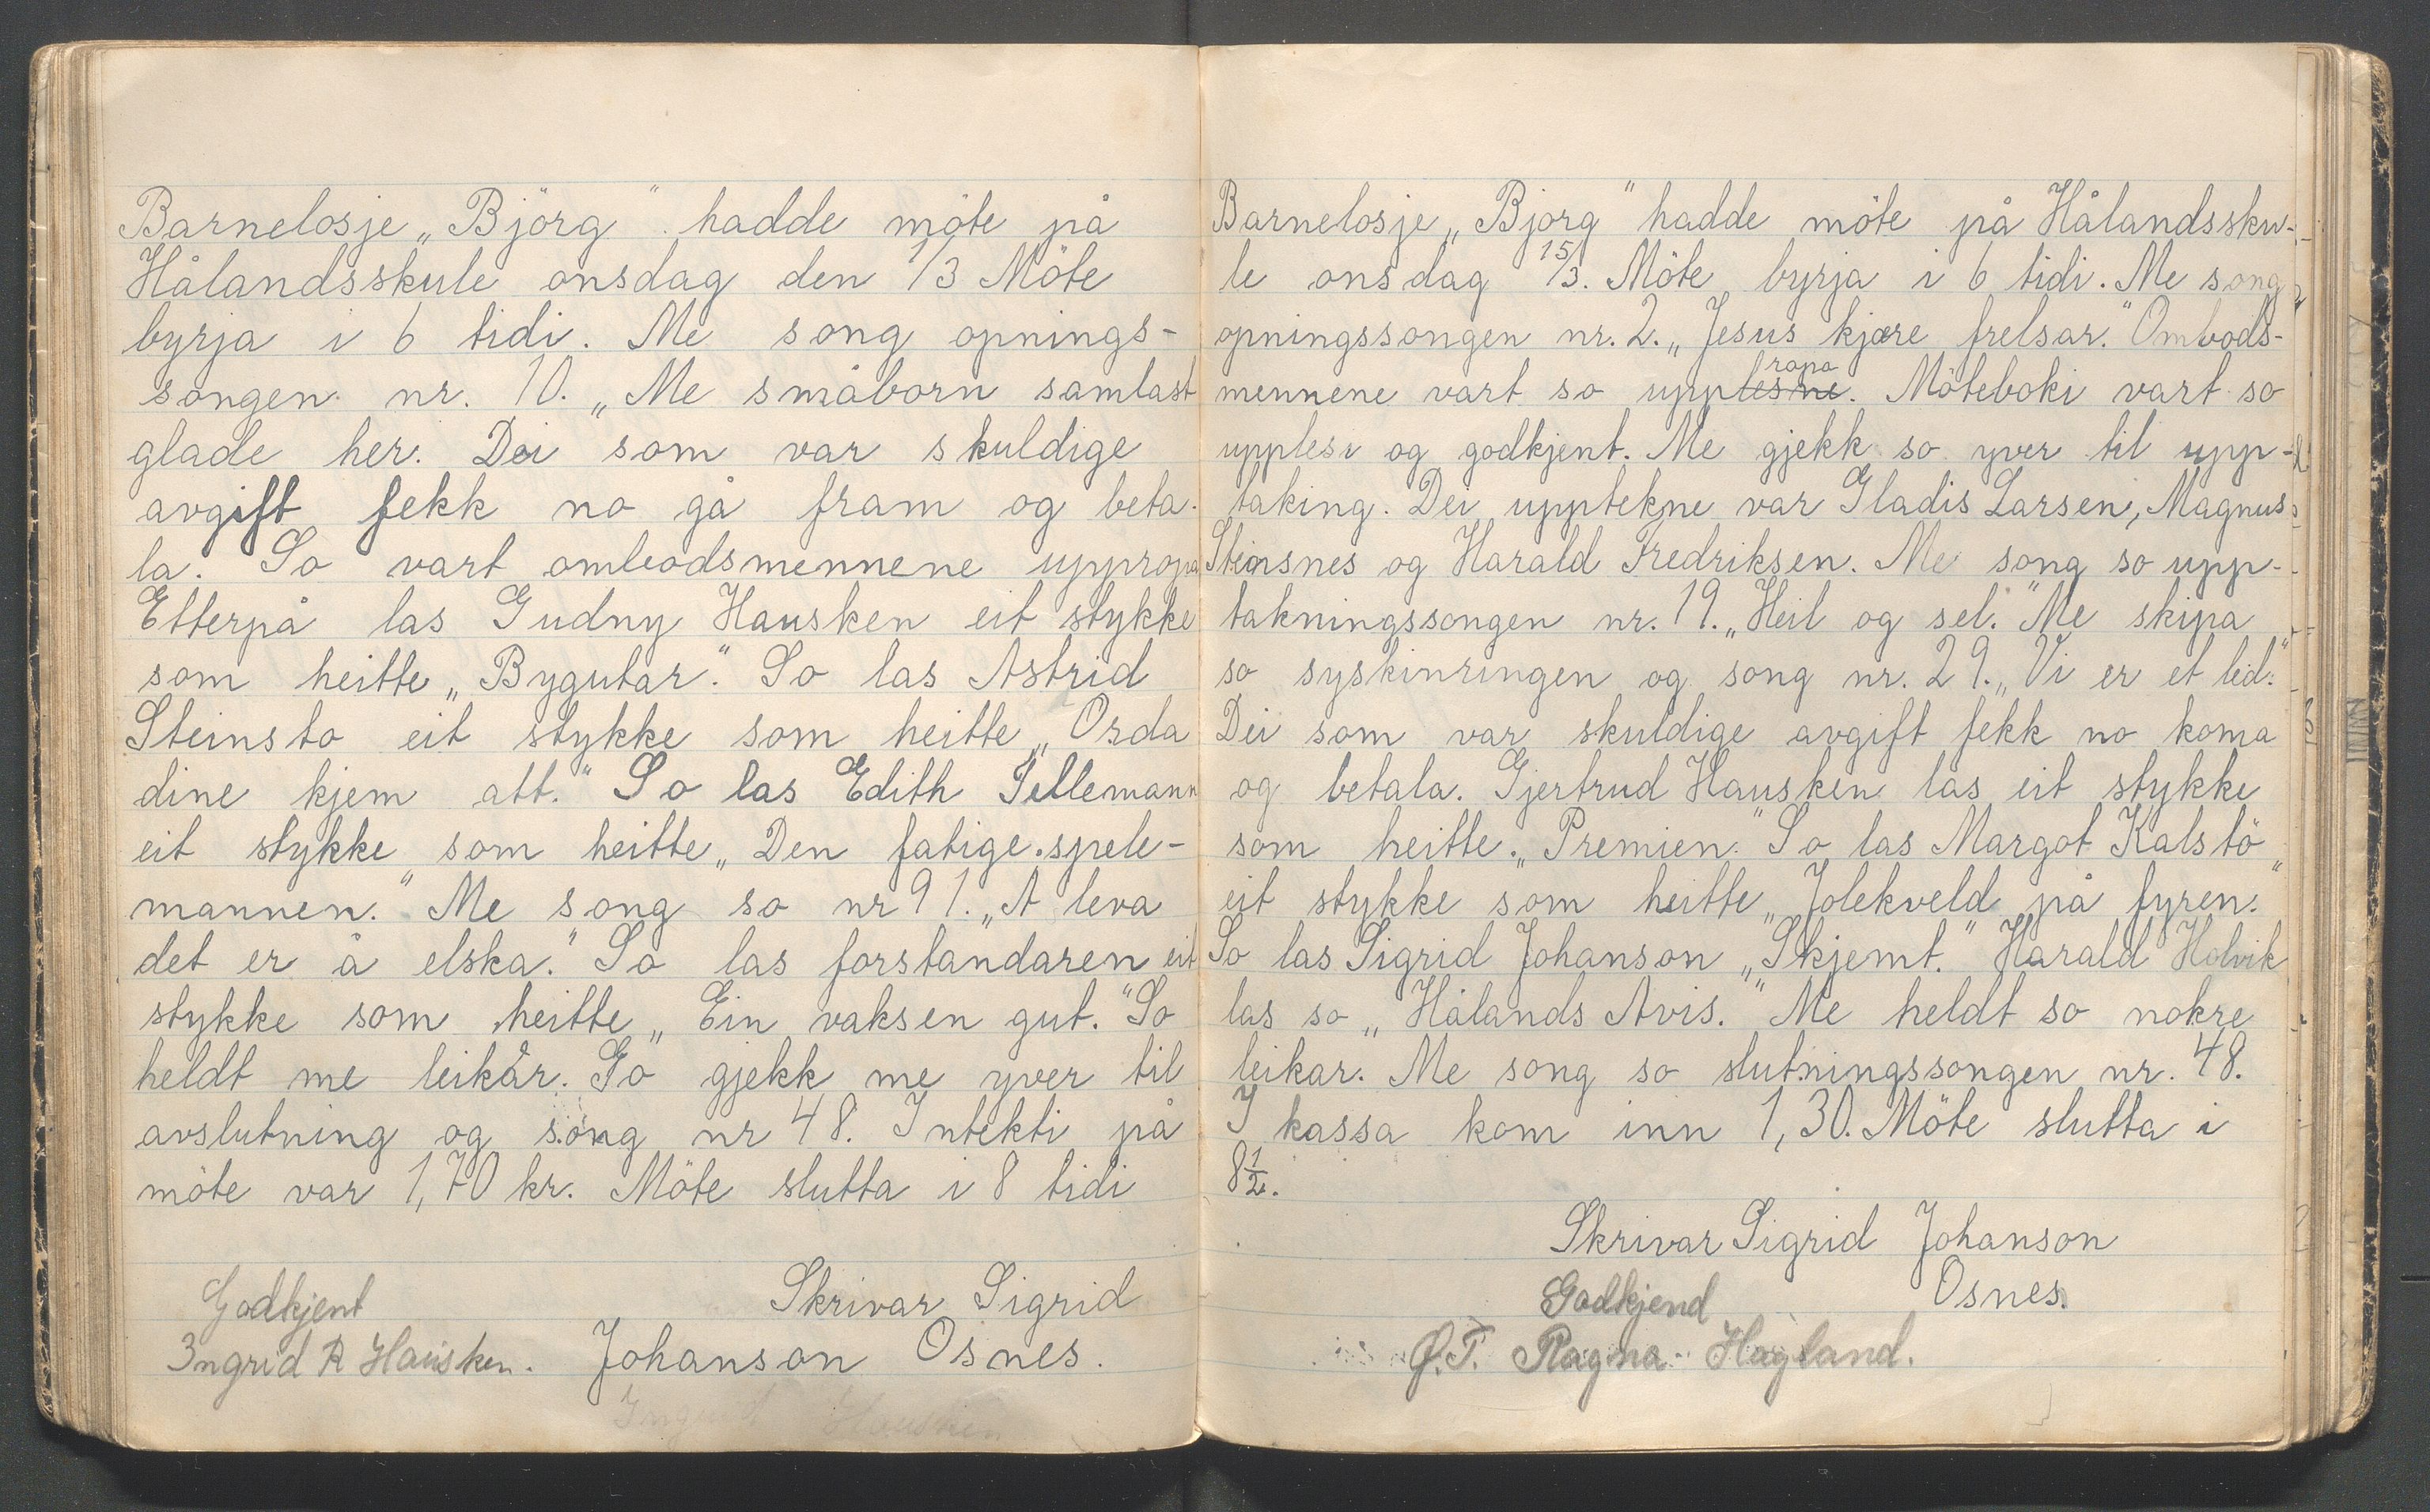 Barnelosje „Björg" hadde möte på
Hålandsskule onsdag den 1/3 Möte
byrja i 6 tidi. Me song opnings-
songen nr. 10. „Me småborn samlast
glade her." Dei som var skuldige
avgift fekk no gå fram og beta-
la. So vart ombodsmennene uppropa
Etterpå las Gudny Hausken eit stykke
som heitte „Bygutar." So las Astrid
Steinsto eit stykke som heitte „Orda
dine kjem att." So las Edith Tellemann
eit stykke som heitte „Den fatige spele-
mannen." Me song so nr 91. „Å leva
det er å elska." So las forstandaren eit
stykke som heitte „Ein vaksen gut." So
heldt me leikar. So gjekk me yver til
avslutning og song nr 48. Intekti på
möte var 1,70 kr. Möte slutta i 8 tidi
Skrivar Sigrid
Johanson Osnes.
Godkjent
Ingrid R Hausken.
Ingrid Hausken
Barnelosje „Bjorg" hadde möte på Hålandssku-
le onsdag 15/3. Möte byrja i 6 tidi. Me song
opningssongen nr. 2. „Jesus kjære frelsar." Ombods-
mennene vart so upplesne ropa. Möteboki vart so
upplesi og godkjent. Me gjekk so yver til upp-
taking. Dei upptekne var Gladis Larsen, Magnus
Steinsnes og Harald Fredriksen. Me song so upp-
takningssongen nr. 19. „Heil og sel." Me skipa
so syskinringen og song nr. 29. „Vi er et led."
Dei som var skuldige avgift fekk no koma
og betala. Gjertrud Hausken las eit stykke
som heitte. „Premien." So las Margot Kalstö
eit stykke som heitte „Jolekveld på fyren."
So las Sigrid Johanson „Skjemt." Harald Holvik
las so „Hålands Avis." Me heldt so nokre
leikar. Me song so slutningssongen nr. 48.
I kassa kom inn 1,30. Möte slutta i
8 1/2.
Skrivar Sigrid Johanson
Osnes.
Godkjend
Ø.T. Ragna Hagland.